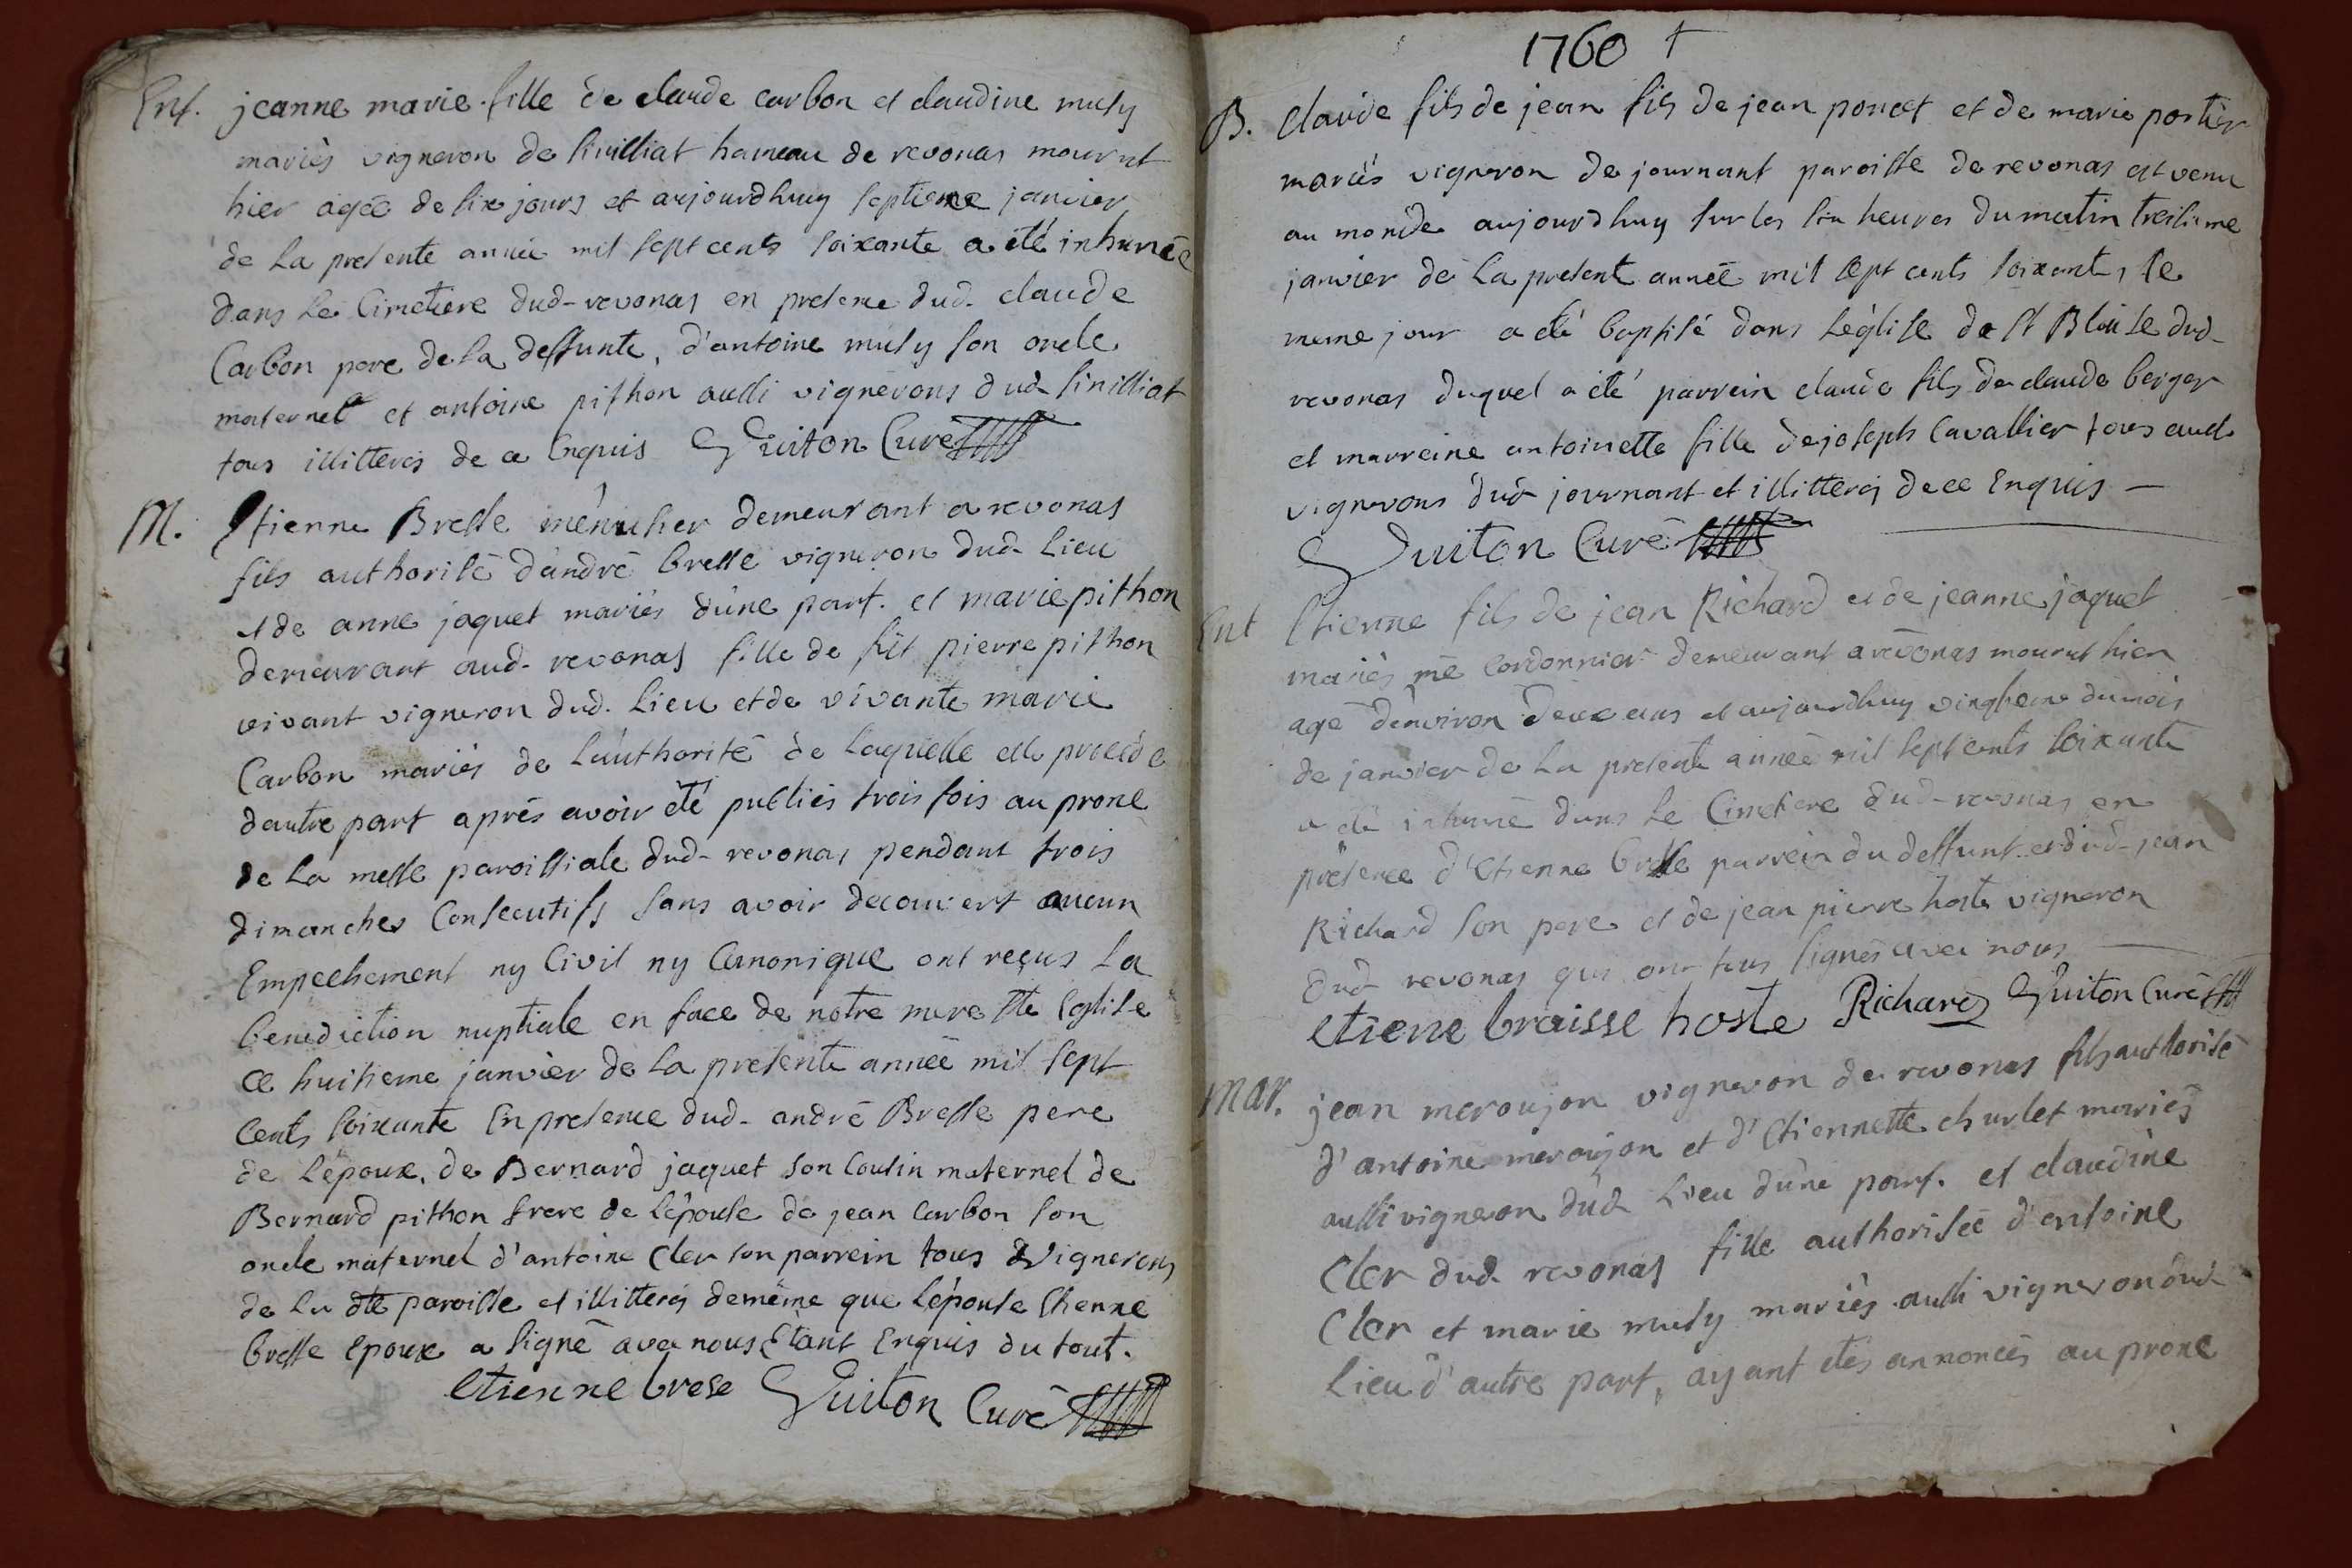 Ent. jeanne marie fille de claude carbon et claudine musy
mariés vigneron de sinilliat hameau de revonas mourut
hier agée de six jours et aujourdhuy septieme janvier
de la presente année mil sept cents soixante a été inhumée
dans le Cimetiere dud- revonas en presence dud- claude
Carbon pere de la deffunte, d'antoine musy son oncle
maternel et antoine pithon aussi vignerons dud- sinilliat
tous illitterés de ce Enquis Guiton Curé
M. Etienne Bresse ménusier demeurant a revonas
fils authorisé d'andré bresse vigneron dud- lieu
et de anne jaquet mariés d'une part. et marie pithon
demeurant aud- revonas fille de fût pierre pithon
vivant vigneron dud. lieu et de vivante marie
Carbon mariés de l'authorité de laquelle elle procède
dautre part aprés avoir été publiés trois fois au prone
de la messe paroissiale dud- revonas pendant trois
dimanches Consecutifs sans avoir decouvert aucun
Empechement ny Civil ny Canonique ont reçus la
benediction nuptiale en face de notre mere ste Eglise
ce huitieme janvier de la presente année mil sept
Cents soixante En presence dud- andré Bresse pere
de l'epoux, de Bernard jaquet son cousin maternel de
Bernard pithon frere de l'épouse de jean carbon son
oncle maternel d'antoine Cler son parrein tous Vignerons
de la dte paroisse et illitterés demême que l'épouse Etienne
bresse epoux a signé avec nous Etant Enquis du tout.
etienne brese Guiton Curé
1760 †
B. Claude fils de jean fils de jean poncet et de marie portier
mariés vigneron de journant paroisse de revonas est venu
au monde aujourdhuy sur les six heures du matin treisieme
janvier de la presente année mil sept cents soixante, le
meme jour a été baptisé dans l'église de St Blaise dud-
revonas duquel a été parrein claude fils de claude berger
et marreine antoinette fille de joseph Cavallier tous aud-
vignerons dud- journant et illitterés de ce Enquis —
Guiton Curé
Ent Etienne fils de jean Richard et de jeanne jaquet
mariés me cordonnier demeurant a revonas mourut hier
agé d'environ deux ans et aujourdhuy vingtieme du mois
de janvier de la presente année mil sept cents soixante
a été inhumé dans le Cimetiere dud- revonas en
presence d'Etienne bresse parrein du deffunt et dud- jean
Richard son pere et de jean pierre hoste vigneron
dud- revonas qui ont tous signés avec nous
etiene braisse hoste Richard Guiton Curé
Mar. jean meroujon vigneron de revonas fils authorisé
d'antoine meroujon et d'Etiennette churlet mariés
aussi vigneron dud- lieu d'une part. et claudine
Cler dud- revonas fille authorisée d'antoine
Cler et marie musy mariés aussi vigneron dud-
lieu d'autre part, ayant etés annoncés au prone